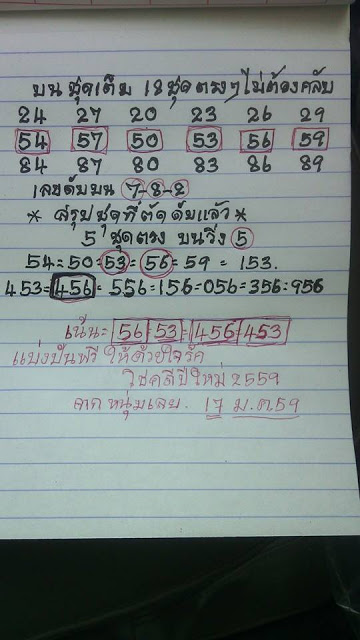 บน ชุดเต็ม 18 ชุดตรงๆ ไม่ต้องกลับ
24 27 20 23 26 29
54 57 50 53 56 59
84 87 80 83 86 89
เลขดับบน 7-8-2
* สรุปชุดที่ตัดดับแล้ว *
5 ชุดตรง บนวิ่ง 5
54=50=53=56=59=153.
453=456=556=156=056=356=956
เน้น= 56=53=456=453
แบ่งปันฟรี ให้ด้วยใจรัก
โชคดีปีใหม่ 2559
จาก หนุ่มเลย. 17 ม.ค 59